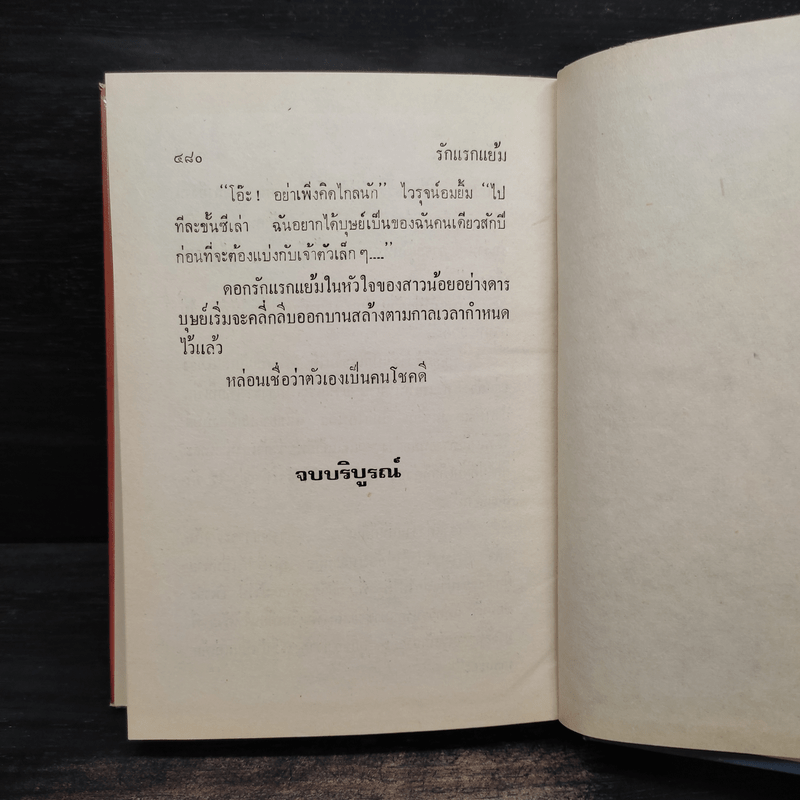 ๔๘๐ รักแรกแย้ม
“โอ๊ะ! อย่าเพิ่งคิดไกลนัก” ไวรุจน์อมยิ้ม “ไป
ทีละขั้นซีเล่า ฉันอยากได้บุษย์เป็นของฉันคนเดียวสักปี
ก่อนที่จะต้องแบ่งกับเจ้าตัวเล็ก ๆ....”
ดอกรักแรกแย้มในหัวใจของสาวน้อยอย่างดาร
บุษย์เริ่มจะคลี่กลีบออกบานสล้างตามกาลเวลากำหนด
ไว้แล้ว
หล่อนเชื่อว่าตัวเองเป็นคนโชคดี
จบบริบูรณ์